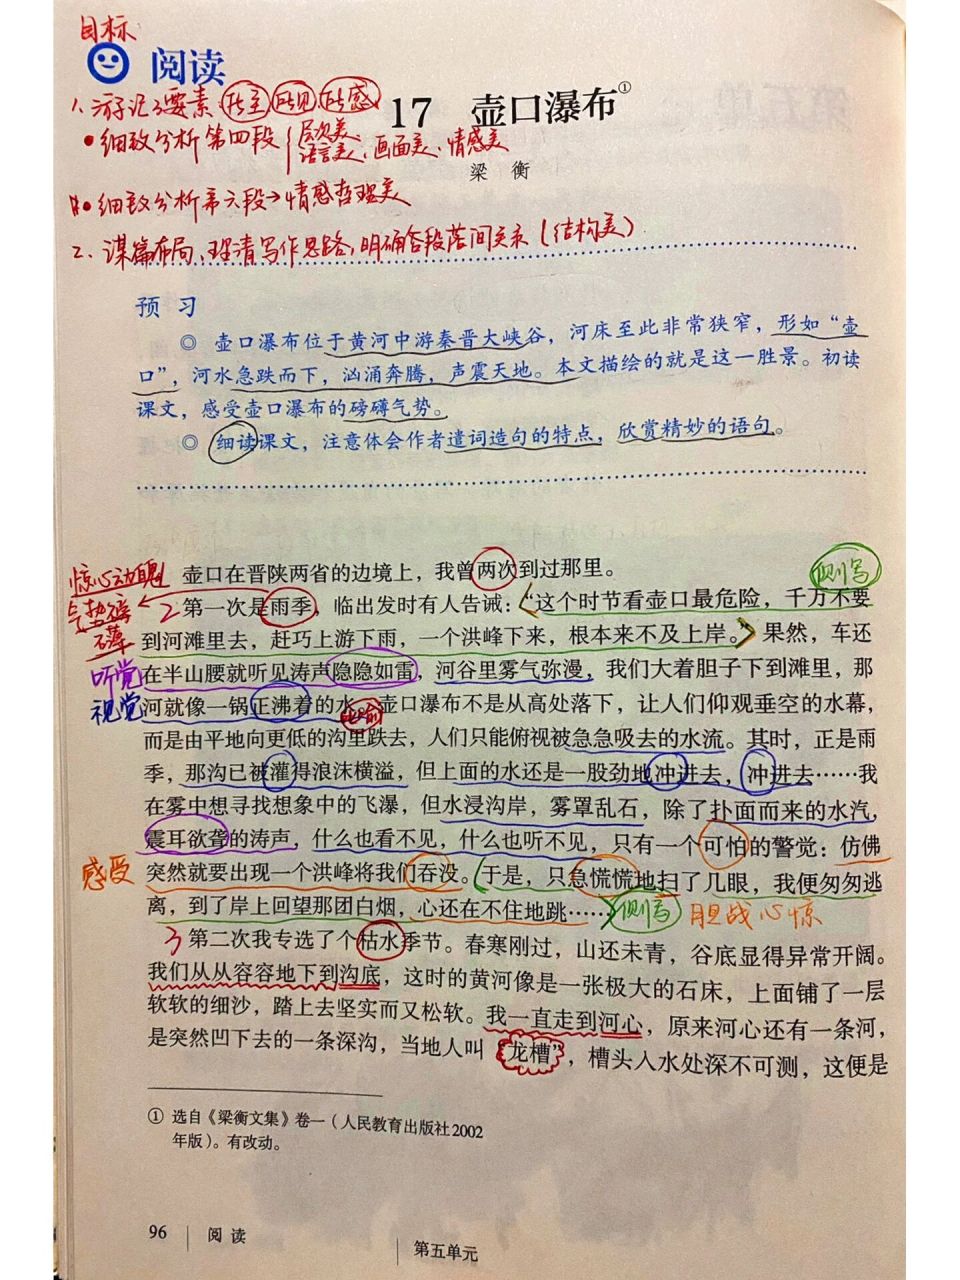 目标
阅读
1、游记三要素:所至 所见 所感
17 壶口瀑布①
• 细致分析第四段 层次美、
语言美、画面美、情感美
梁 衡
• 细致分析第六段→情感哲理美
2、谋篇布局、理清写作思路,明确各段落间关系(结构美)
预 习
◎ 壶口瀑布位于黄河中游秦晋大峡谷,河床至此非常狭窄,形如“壶
口”,河水急跌而下,汹涌奔腾,声震天地。本文描绘的就是这一胜景。初读
课文,感受壶口瀑布的磅礴气势。
◎ 细读课文,注意体会作者遣词造句的特点,欣赏精妙的语句。
惊心动魄
气势磅
礴
侧写
壶口在晋陕两省的边境上,我曾两次到过那里。
2 第一次是雨季,临出发时有人告诫:“这个时节看壶口最危险,千万不要
到河滩里去,赶巧上游下雨,一个洪峰下来,根本来不及上岸。”果然,车还
听觉 在半山腰就听见涛声隐隐如雷,河谷里雾气弥漫,我们大着胆子下到滩里,那
视觉 河就像一锅正沸着的水。壶口瀑布不是从高处落下,让人们仰观垂空的水幕,
比喻
而是由平地向更低的沟里跌去,人们只能俯视被急急吸去的水流。其时,正是雨
季,那沟已被灌得浪沫横溢,但上面的水还是一股劲地冲进去,冲进去……我
在雾中想寻找想象中的飞瀑,但水浸沟岸,雾罩乱石,除了扑面而来的水汽,
震耳欲聋的涛声,什么也看不见,什么也听不见,只有一个可怕的警觉:仿佛
感受 突然就要出现一个洪峰将我们吞没。于是,只急慌慌地扫了几眼,我便匆匆逃
离,到了岸上回望那团白烟,心还在不住地跳…… 侧写 胆战心惊
3 第二次我专选了个枯水季节。春寒刚过,山还未青,谷底显得异常开阔。
我们从从容容地下到沟底,这时的黄河像是一张极大的石床,上面铺了一层
软软的细沙,踏上去坚实而又松软。我一直走到河心,原来河心还有一条河,
是突然凹下去的一条深沟,当地人叫“龙槽”,槽头入水处深不可测,这便是
① 选自《梁衡文集》卷一(人民教育出版社2002
年版)。有改动。
96 阅 读
第五单元